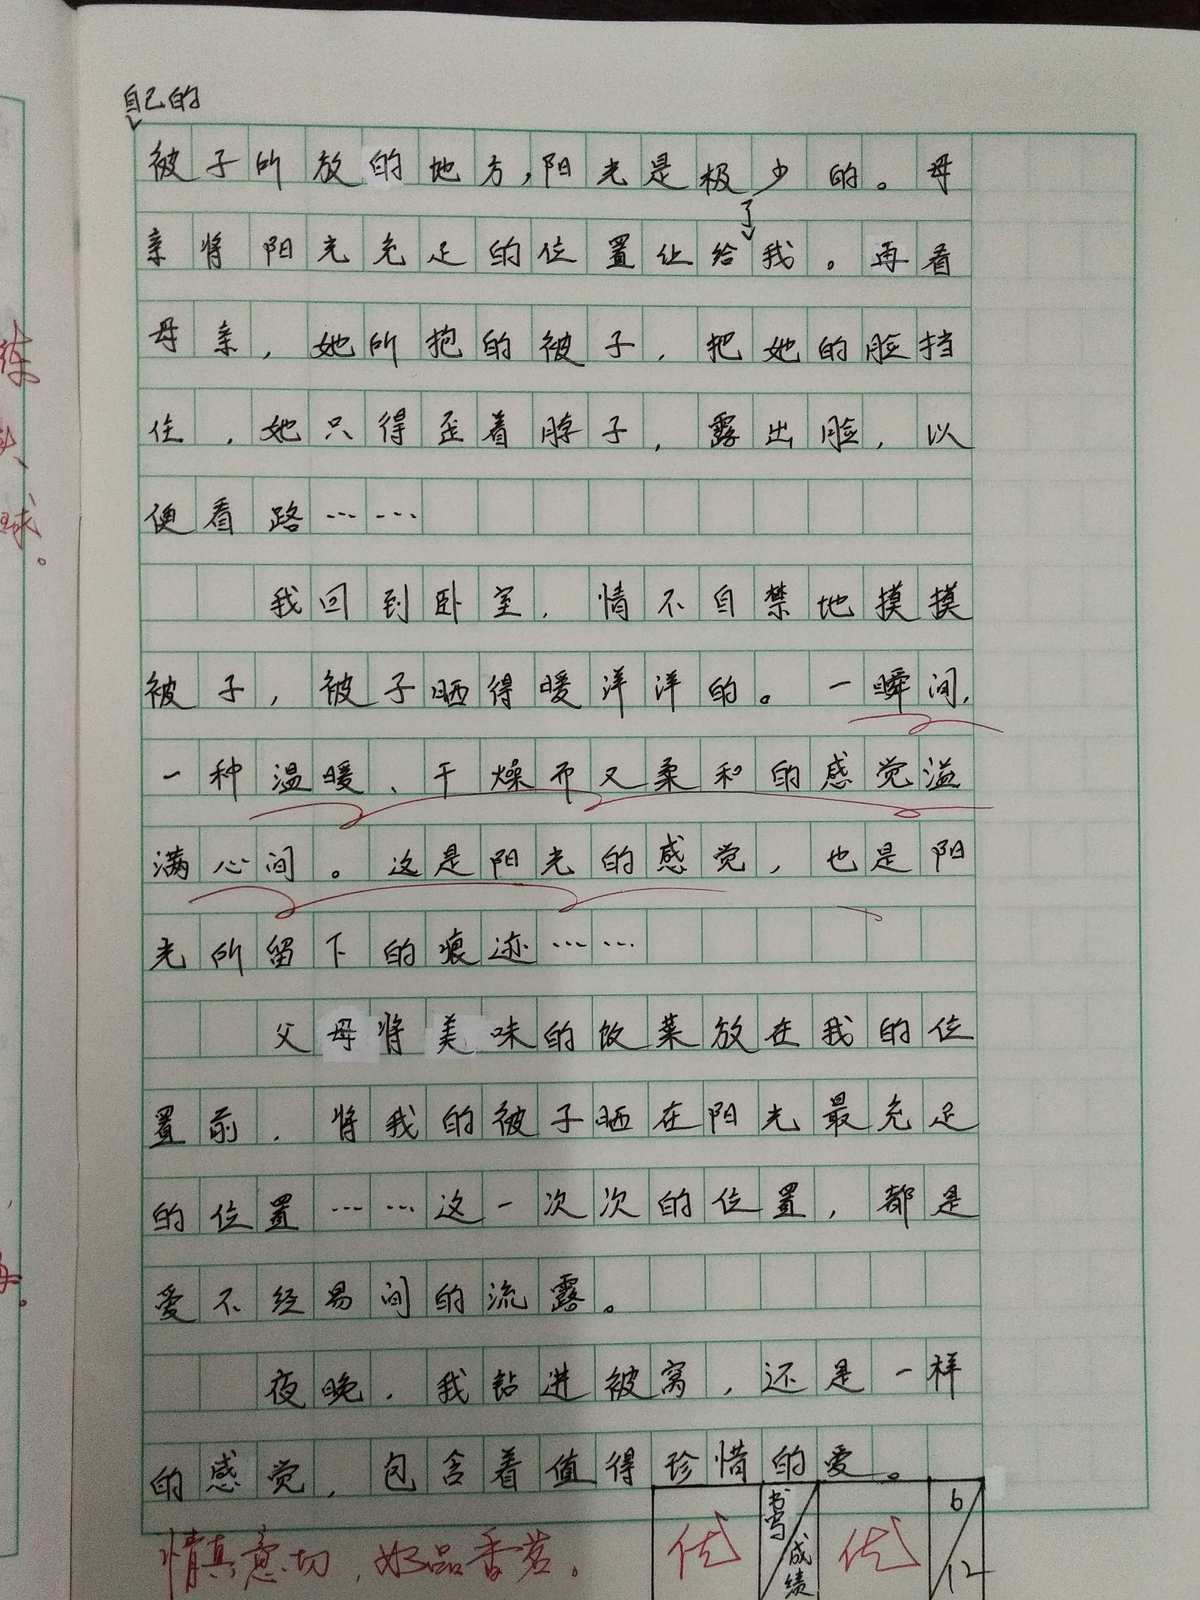 自己的
被子所放的地方,阳光是极少的。母
了
亲将阳光充足的位置让给我。再看
母亲,她所抱的被子,把她的脸挡
住,她只得歪着脖子,露出脸,以
便看路……
我回到卧室,情不自禁地摸摸
被子,被子晒得暖洋洋的。一瞬间,
一种温暖、干燥而又柔和的感觉溢
满心间。这是阳光的感觉,也是阳
光所留下的痕迹……
父母将美味的饭菜放在我的位
置前,将我的被子晒在阳光最充足
的位置……这一次次的位置,都是
爱不经易间的流露。
夜晚,我钻进被窝,还是一样
的感觉,包含着值得珍惜的爱。
情真意切,如品香茗。
优
书写/成绩
优
6/12
练
球。